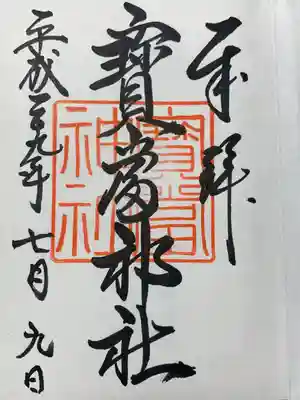 奉拝
寳當神社
寳當神社
平成二十九年七月九日